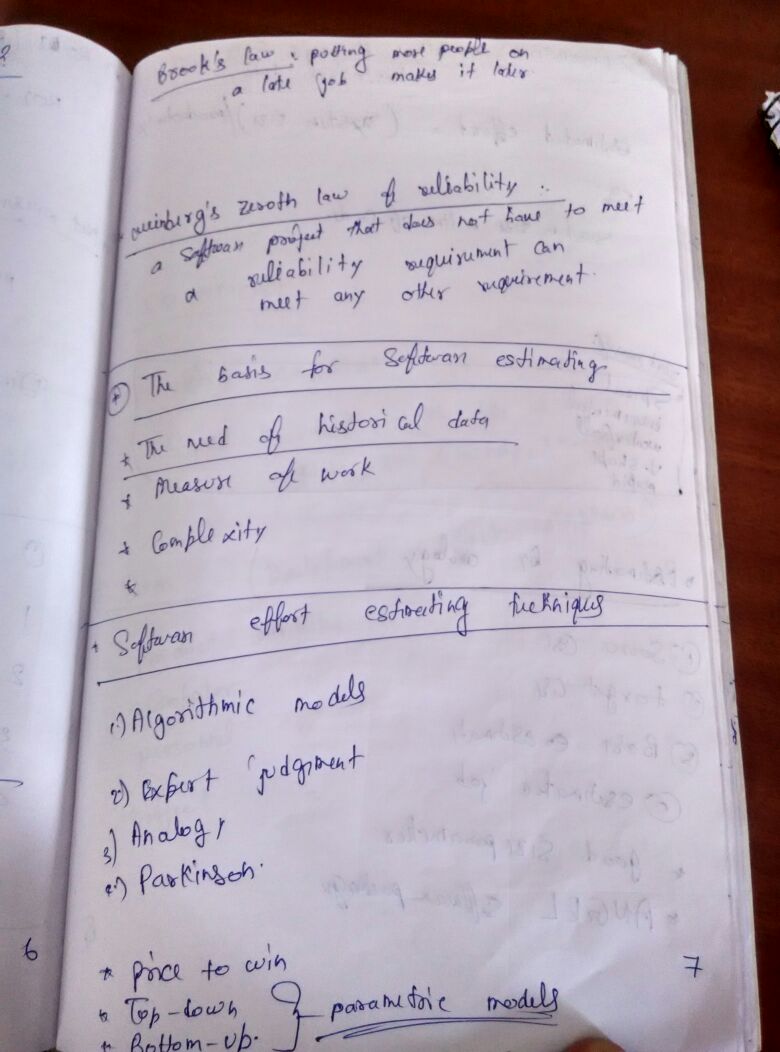 Brook's law : putting more people on
a late job makes it later
weinburg's zeroth law of reliability :-
a software project that does not have to meet
a reliability requirement can
meet any other requirement.
* The basis for Software estimating
* The need of historical data
* Measure of work
* Complexity
*
* Software effort estimating techniques
1) Algorithmic models
2) Expert judgment
3) Analogy
4) Parkinson.
* price to win
* Top-down
* Bottom-up.
parametric models
6
7